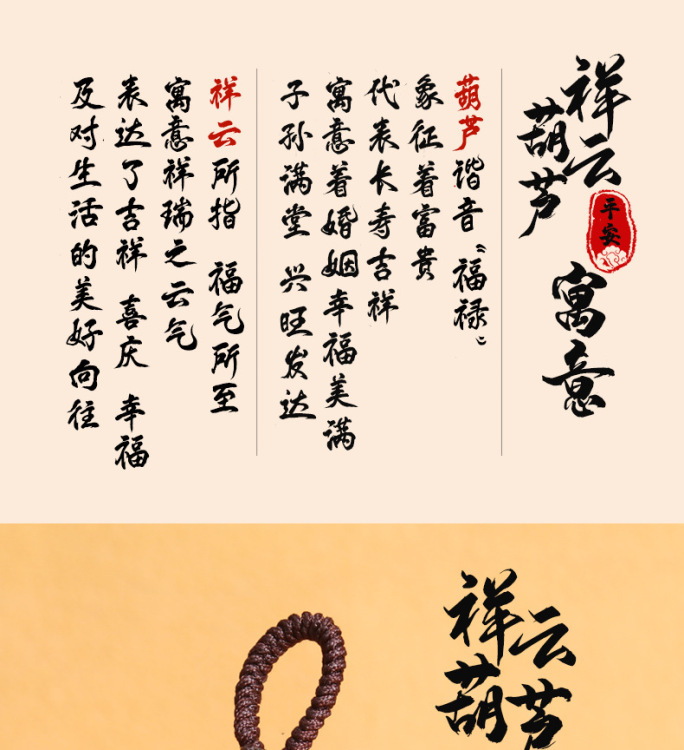 祥云
葫芦
平安
寓意
葫芦谐音“福禄”
象征着富贵
代表长寿吉祥
寓意着婚姻幸福美满
子孙满堂 兴旺发达
祥云所指 福气所至
寓意祥瑞之云气
表达了吉祥 喜庆 幸福
及对生活的美好向往
祥云
葫芦